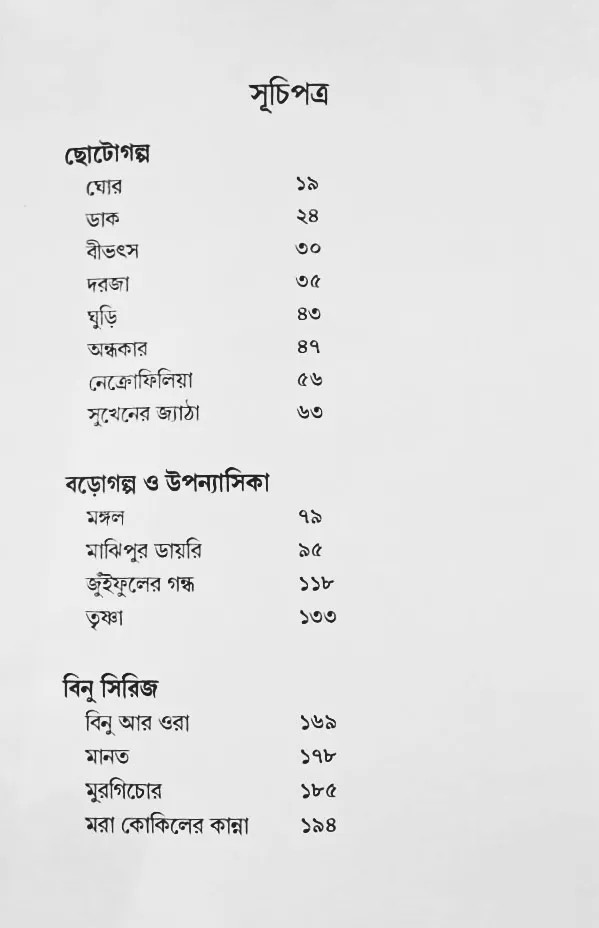 সূচিপত্র
ছোটোগল্প
ঘোর ১৯
ডাক ২৪
বীভৎস ৩০
দরজা ৩৫
ঘুড়ি ৪৩
অন্ধকার ৪৭
নেক্রোফিলিয়া ৫৬
সুখেনের জ্যাঠা ৬৩
বড়োগল্প ও উপন্যাসিকা
মঙ্গল ৭৯
মাঝিপুর ডায়রি ৯৫
জুঁইফুলের গন্ধ ১১৮
তৃষ্ণা ১৩৩
বিনু সিরিজ
বিনু আর ওরা ১৬৯
মানত ১৭৮
মুরগিচোর ১৮৫
মরা কোকিলের কান্না ১৯৪